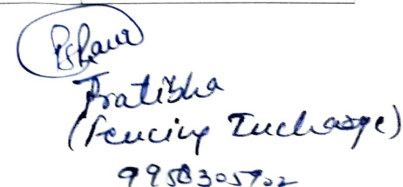 Pratibha
(Fencing Incharge)
9958305902